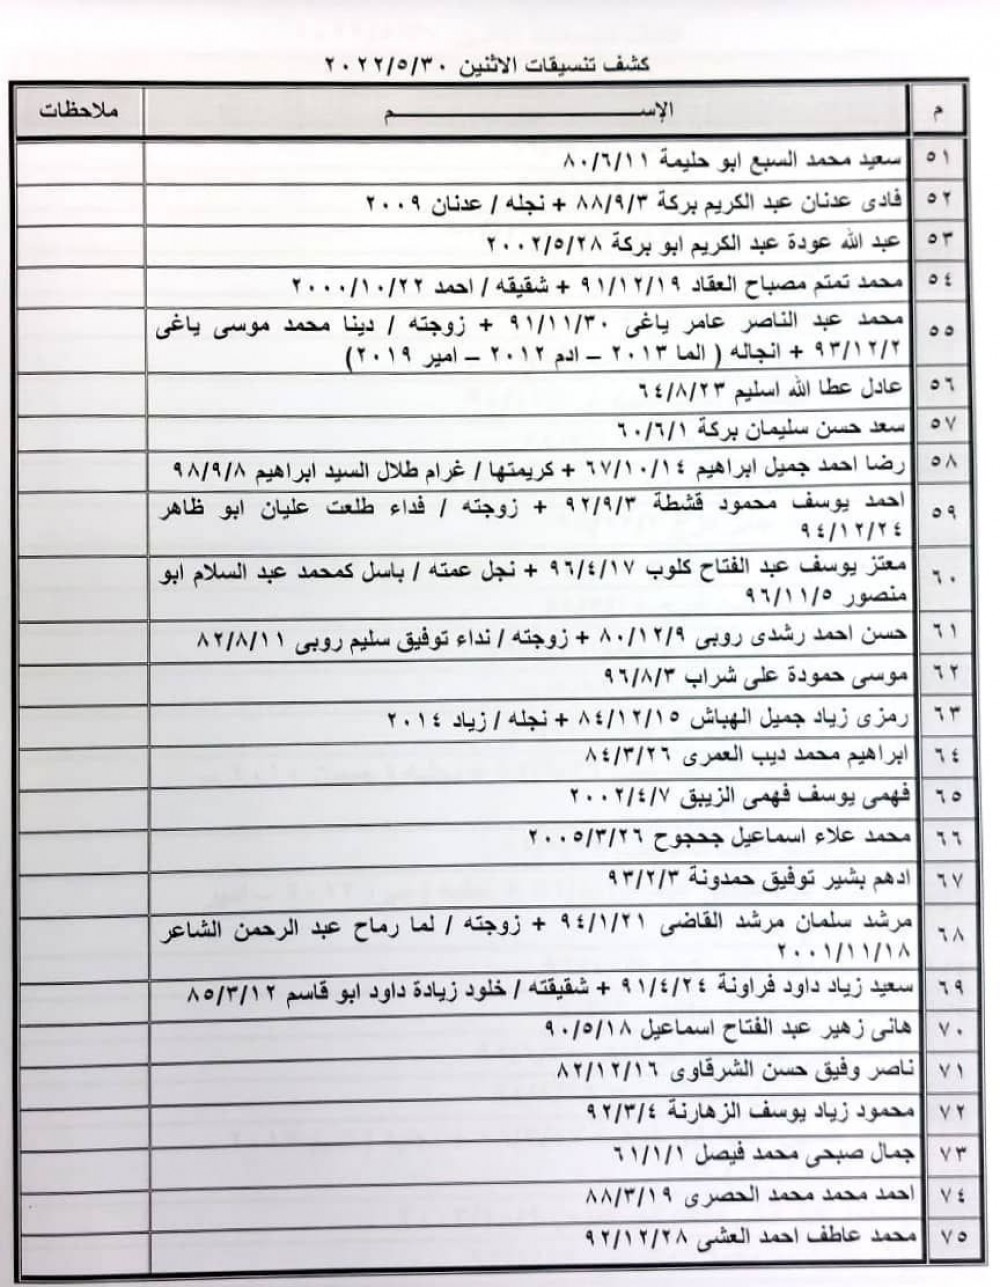 كشف تنسيقات الاثنين ٢٠٢٢/٥/٣٠
م الإســـــــــــم ملاحظات
٥١ سعيد محمد السبع ابو حليمة ٨٠/٦/١١
٥٢ فادى عدنان عبد الكريم بركة ٨٨/٩/٣ + نجله / عدنان ٢٠٠٩
٥٣ عبد الله عودة عبد الكريم ابو بركة ٢٠٠٢/٥/٢٨
٥٤ محمد تمتم مصباح العقاد ٩١/١٢/١٩ + شقيقه / احمد ٢٠٠٠/١٠/٢٢
٥٥ محمد عبد الناصر عامر ياغى ٩١/١١/٣٠ + زوجته / دينا محمد موسى ياغى
٩٣/١٢/٢ + انجاله ( الما ٢٠١٣ – ادم ٢٠١٢ – امير ٢٠١٩)
٥٦ عادل عطا الله اسليم ٦٤/٨/٢٣
٥٧ سعد حسن سليمان بركة ٦٠/٦/١
٥٨ رضا احمد جميل ابراهيم ٦٧/١٠/١٤ + كريمتها / غرام طلال السيد ابراهيم ٩٨/٩/٨
٥٩ احمد يوسف محمود قشطة ٩٢/٩/٣ + زوجته / فداء طلعت عليان ابو ظاهر
٩٤/١٢/٢٤
٦٠ معتز يوسف عبد الفتاح كلوب ٩٦/٤/١٧ + نجل عمته / باسل كمحمد عبد السلام ابو
منصور ٩٦/١١/٥
٦١ حسن احمد رشدى روبى ٨٠/١٢/٩ + زوجته / نداء توفيق سليم روبى ٨٢/٨/١١
٦٢ موسى حمودة على شراب ٩٦/٨/٣
٦٣ رمزى زياد جميل الهباش ٨٤/١٢/١٥ + نجله / زياد ٢٠١٤
٦٤ ابراهيم محمد ديب العمرى ٨٤/٣/٢٦
٦٥ فهمى يوسف فهمى الزيبق ٢٠٠٢/٤/٧
٦٦ محمد علاء اسماعيل جحجوح ٢٠٠٥/٣/٢٦
٦٧ ادهم بشير توفيق حمدونة ٩٣/٢/٣
٦٨ مرشد سلمان مرشد القاضى ٩٤/١/٢١ + زوجته / لما رماح عبد الرحمن الشاعر
٢٠٠١/١١/١٨
٦٩ سعيد زياد داود فراونة ٩١/٤/٢٤ + شقيقته / خلود زيادة داود ابو قاسم ٨٥/٣/١٢
٧٠ هانى زهير عبد الفتاح اسماعيل ٩٠/٥/١٨
٧١ ناصر وفيق حسن الشرقاوى ٨٢/١٢/١٦
٧٢ محمود زياد يوسف الزهارنة ٩٢/٣/٤
٧٣ جمال صبحى محمد فيصل ٦١/١/١
٧٤ احمد محمد محمد الحصرى ٨٨/٣/١٩
٧٥ محمد عاطف احمد العشى ٩٢/١٢/٢٨